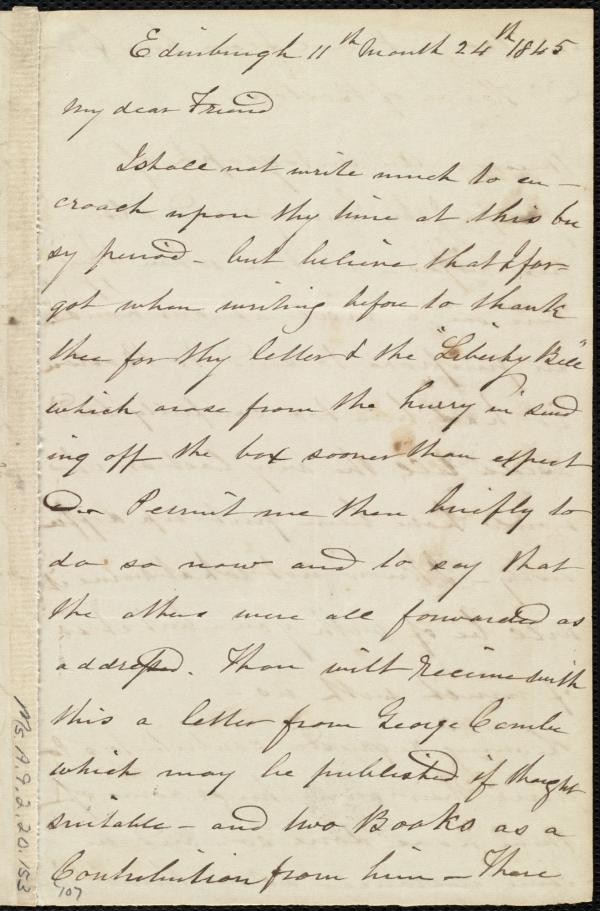 Edinburgh 11th Month 24th 1845
My dear Friend
I shall not write much to en-
croach upon thy time at this bu
sy period - but believe that I for-
got when writing before to thank
thee for thy letter & the "Liberty Bell"
which arose from the hurry in send
ing off the box sooner than expect
ed. Permit me then briefly to
do so now and to say that
the others were all forwarded as
addressed. Thou wilt receive with
this a letter from George Combe
which may be published if thought
suitable - and two Books as a
Contribution from him - There
Ms. A.9.2.20.153
107